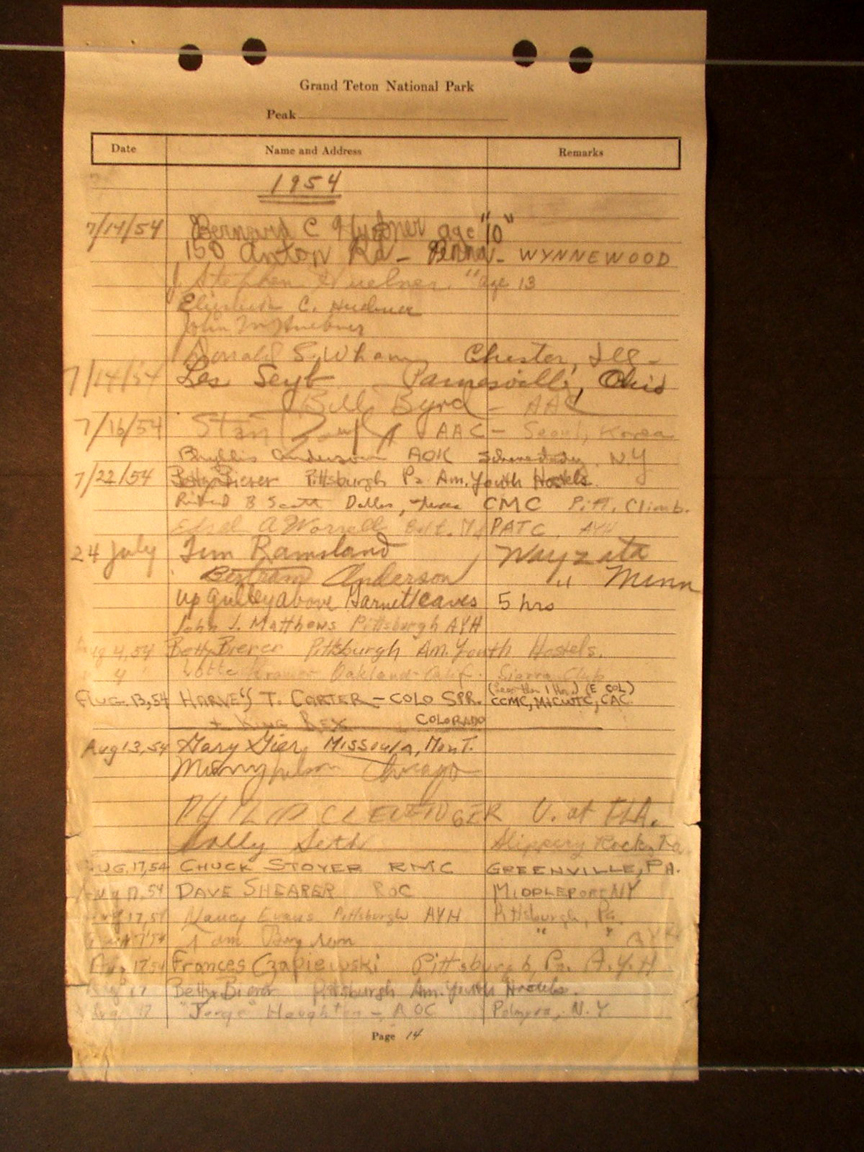 Grand Teton National Park
Peak
Date Name and Address Remarks
1954
7/14/54 Bernard C Huebner age "10"
150 Anton Rd - Penna - WYNNEWOOD
J. Stephen Huebner "age 13
Elizabeth C. Huebner
John M Huebner
Donald S. Wham Chester, Ill -
7/14/54 Les Seyb Painesville, Ohio
Bill Byrd - AAC
7/16/54 Stan AAC - Seoul, Korea
Phyllis Anderson AOK Schenectady, NY
7/22/54 Betty Bierer Pittsburgh Pa Am. Youth Hostels.
B Scott Dallas, Texas CMC Pitt. Climb.
A Worrell PATC AYH
24 July Jim Ramsland Wayzata
Bertram Anderson " Minn
up gulley above Garnett caves 5 hrs
John J. Matthews Pittsburgh AYH
Aug 4, 54 Betty Bierer Pittsburgh Am. Youth Hostels.
" 4 Lotte Oakland Calif. Sierra Club
(1 Hr.) (E COL)
AUG. 13, 54 HARVEY T. CARTER - COLO SPR. CCMC, CAC.
+ KING REX COLORADO
Aug 13, 54 Gary Gier, Missoula, Mont.
Chicago
PHILIP CLEVENGER U. of FLA.
Seth Slippery Rock, Pa.
AUG. 17, 54 CHUCK STOYER RMC GREENVILLE, PA.
Aug 17, 54 DAVE SHEARER ROC MIDDLEPORT NY
Aug 17, 54 Nancy Evans Pittsburgh AYH Pittsburgh, Pa.
" "
Aug 17 54 Frances Czapiewski Pittsburgh, Pa. A.Y.H
Aug 17 Betty Bierer Pittsburgh Am. Youth Hostels.
Aug 17 Houghton - AOC Palmyra, N.Y.
Page 14